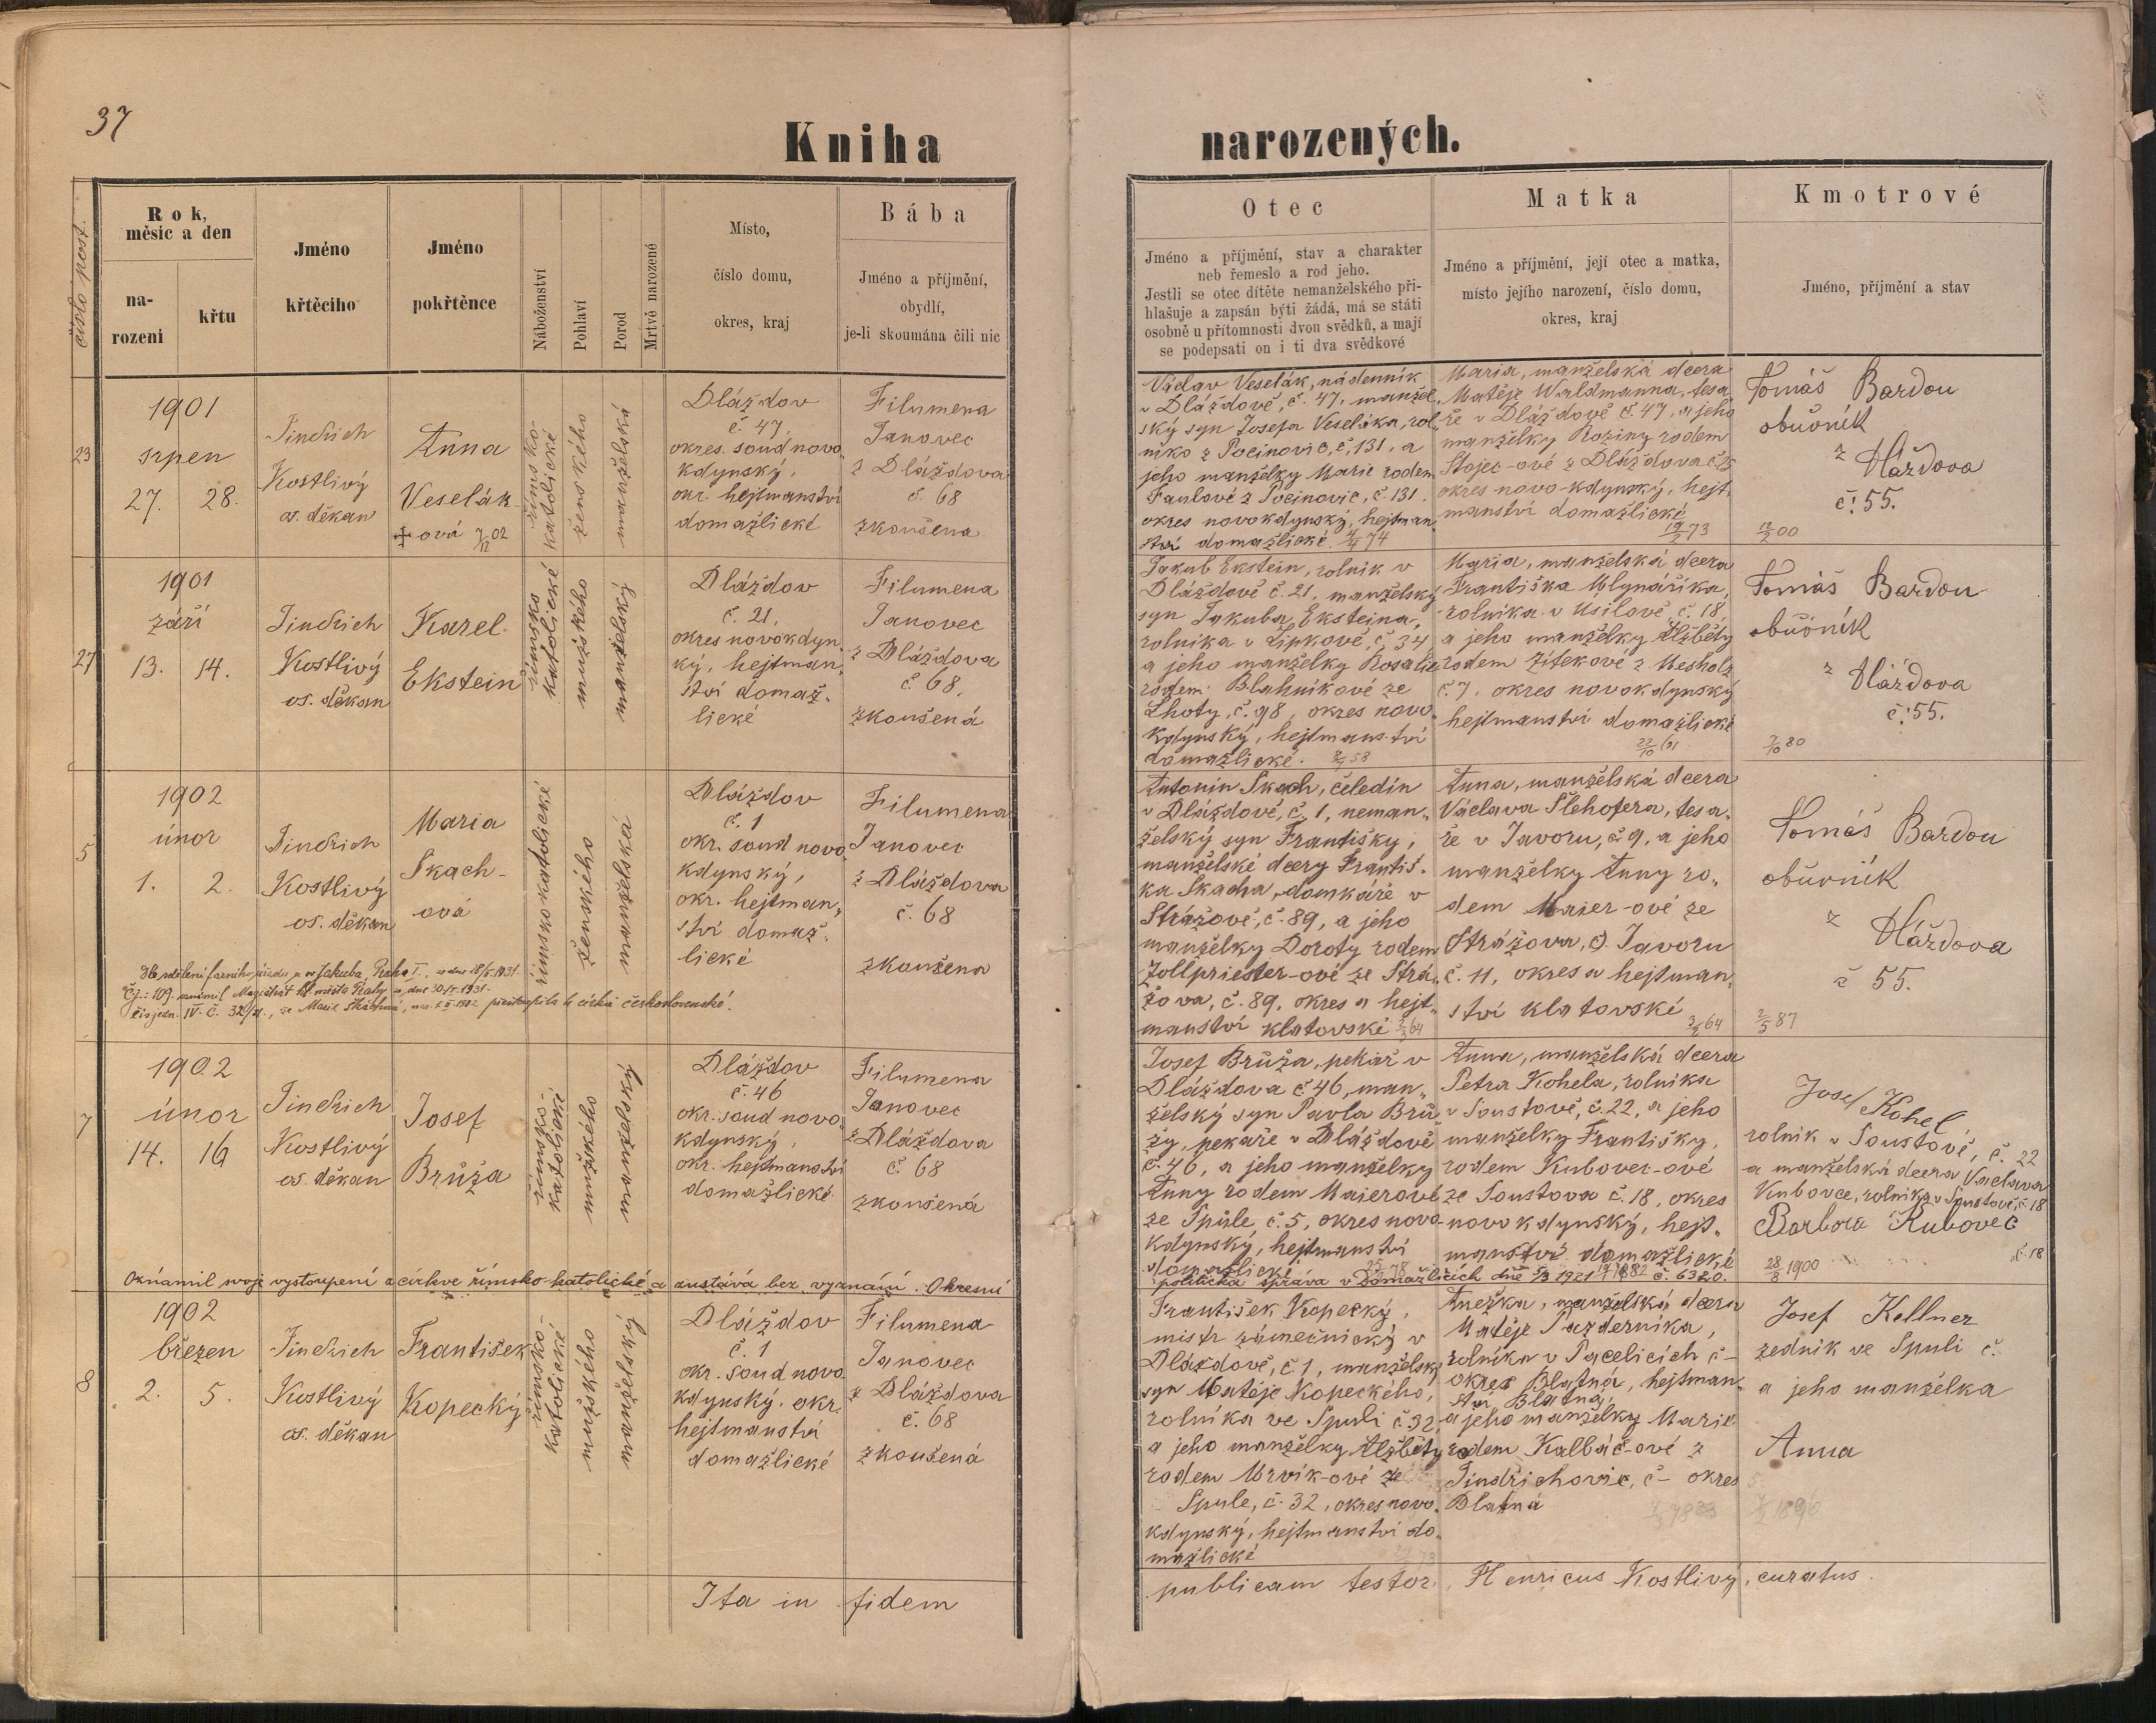 37
Kniha narozených.
číslo post.
Rok, měsíc a den
na-
rozeni
křtu
Jméno
křtěcího
Jméno
pokřtěnce
Náboženství
Pohlaví
Porod
Mrtvě narozené
Místo,
číslo domu,
okres, kraj
Bába
Jméno a příjmění,
obydlí,
je-li skoumána čili nic
Otec
Jméno a příjmění, stav a charakter
neb řemeslo a rod jeho.
Jestli se otec dítěte nemanželského při-
hlašuje a zapsán býti žádá, má se státi
osobně u přítomnosti dvou svědků, a mají
se podepsati on i ti dva svědkové
Matka
Jméno a příjmění, její otec a matka,
místo jejího narození, číslo domu,
okres, kraj
Kmotrové
Jméno, příjmění a stav
23
1901
srpen
27. 28.
Jindřich
Kostlivý
os. děkan
Anna
Veselák-
ová
římsko-
katolické
ženského
manželská
Dláždov
č. 47,
okres. soud novo
kdynský,
okr. hejtmanství
domažlické
Filumena
Janovec
z Dláždova
č. 68
zkoušena
Václav Veselák, nádenník
v Dláždově, č. 47, manžel.
ský syn Josefa Veseláka, rol,
níka z Počínovic, č. 131, a
jeho manželky Marie rodem
Paulové z Počínovic, č. 131.
okres novokdynský, hejtman.
ství domažlické.
Maria, manželská dcera
Matěje Waldmanna, tesa
ře v Dláždově č. 47, a jeho
manželky Roziny rodem
Stojec-ové z Dláždova č.
okres novo-kdynský, hejt.
manství domažlické
Tomáš Bardon
obuvník
z Dláždova
č. 55.
27
1901
září
13. 14.
Jindřich
Kostlivý
os. děkan
Karel
Ekstein
římsko
katolické
mužského
manželský
Dláždov
č. 21,
okres novokdyn.
ký, hejtman,
ství domaž.
lické
Filumena
Janovec
z Dláždova
č. 68,
zkoušená
Jakub Ekstein, rolník v
Dláždově č. 21, manželský
syn Jakuba Eksteina,
rolníka v Lipkově, č. 34
a jeho manželky Rosalie
rodem Blahníkové ze
Lhoty, č. 98, okres novo.
kdynský, hejtmanství
domažlické.
Maria, manželská dcera
Františka Mlynáříka,
rolníka v Úsilově, č. 18,
a jeho manželky Alžběty
rodem Zítekové z Mesholz
č. 7. okres novokdynský
hejtmanství domažlické
Tomáš Bardon
obuvník
z Dláždova
č. 55.
5
1902
únor
1. 2.
Jindřich
Kostlivý
os. děkan
Maria
Skach-
ová
římsko katolické
ženského
manželská
Dláždov
č. 1
okr. soud novo
kdynský,
okr. hejtman,
ství domaž.
lické
Filumena
Janovec
z Dláždova
č. 68
zkoušena
Antonín Skach, čeledín
v Dláždově, č. 1, neman.
želský syn Františky,
manželské dcery Franti­š.
ka Skacha, domkáře v
Strážově, č. 89, a jeho
manželky Doroty rodem
Zollpriester-ové ze Strá.
žova, č. 89, okres a hejt.
manství klatovské
Anna, manželská dcera
Václava Šlehofera, tesa.
ře v Javoru, č. 9, a jeho
manželky Anny ro,
dem Maier-ové ze
Strážova, Javoru
č. 11, okres a hejtman.
ství klatovské
Tomáš Bardon
obuvník
z Dláždova
č 55.
7
1902
únor
14. 16
Jindřich
Kostlivý
os. děkan
Josef
Brůža
římsko-
katolické
mužského
manželský
Dláždov
č. 46
okr. soud novo
kdynský,
okr. hejtmanství
domažlické
Filumena
Janovec
z Dláždova
č. 68
zkoušená
Josef Brůža, pekař v
Dláždova č 46, man,
želský syn Pavla Brů
ži, pekaře v Dláždově
č. 46, a jeho manželky
Anny rodem Maierové
ze Spůle, č. 5, okres novo
kdynský, hejtmanství
domažlické
Anna, manželská dcera
Petra Kohela, rolníka
v Soustově, č. 22, a jeho
manželky Františky,
rodem Kubovec-ové
ze Soustova č. 18, okres
novokdynský, hejt.
manství domažlické
Josef Kohel
rolník v Soustově, č. 22
a manželská dcera Václava
Kubovce, rolníka v Soustově, č. 18
Barbora Kubovec
č. 18
28/8 1900
Oznámil svoje vystoupení z církve římsko-katolické a zůstává bez vyznání. Okresní
politická správa v Domažlicích dne 5/3 1921 č. 6320.
8
1902
březen
2. 5.
Jindřich
Kostlivý
os. děkan
František
Kopecký
římsko-
katolické
mužského
manželský
Dláždov
č. 1
okr. soud novo
kdynský. okr.
hejtmanství
domažlické
Filumena
Janovec
z Dláždova
č. 68
zkoušená
František Kopecký,
mistr zámečnický v
Dláždově, č 1, manželský
syn Matěje Kopeckého,
rolníka ve Spuli č. 32,
a jeho manželky Alžběty
rodem Mrvík-ové ze
Spule, č. 32, okres novo.
kdynský, hejtmanství do.
mažlické
Anežka, manželská dcera
Matěje Pazderníka,
rolníka v Pacelicích č –
okres Blatná, hejtman.
ství Blatná,
a jeho manželky Marie
rodem Kalbáč-ové z
Jindřichovic, č – okres
Blatná
Josef Kellner
zedník ve Spuli č.
a jeho manželka
Anna
Ita in fidem publicam testor. Henricus Kostlivý, curatus.